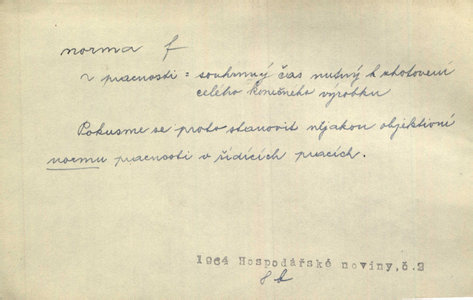 norma f
~ pracnosti = souhrnný čas nutný k zhotovení
celého konečného výrobku
Pokusme se proto stanovit nějakou objektivní
normu pracnosti v řídících pracích.
1964 Hospodářské noviny, č. 2
8b